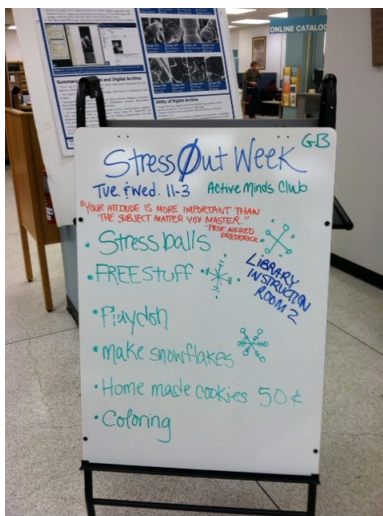 ONLINE CATALOG
Utility of Digital Archive
G-13
Stress Out Week
Tue. & Wed. 11-3 Active Minds Club
"YOUR ATTITUDE IS MORE IMPORTANT THAN
THE SUBJECT MATTER YOU MASTER."
-PROF. ALFRED
FREDERICK
• Stress balls
• FREE Stuff
LIBRARY
INSTRUCTION
ROOM 2
• Playdoh
• make snowflakes
• Home made cookies 50¢
• Coloring